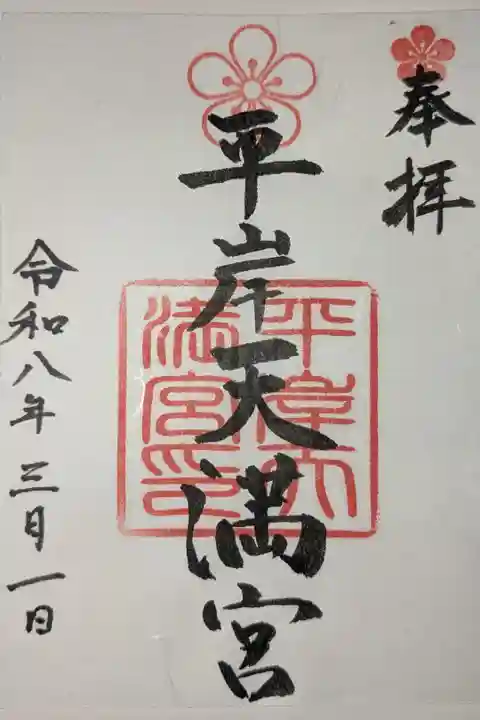 奉拝
平岸天満宮
平岸天満宮印
令和八年三月一日